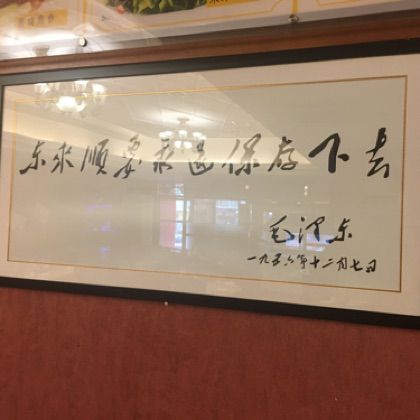 东来顺要永远保存下去
毛泽东
一九五六年十二月七日